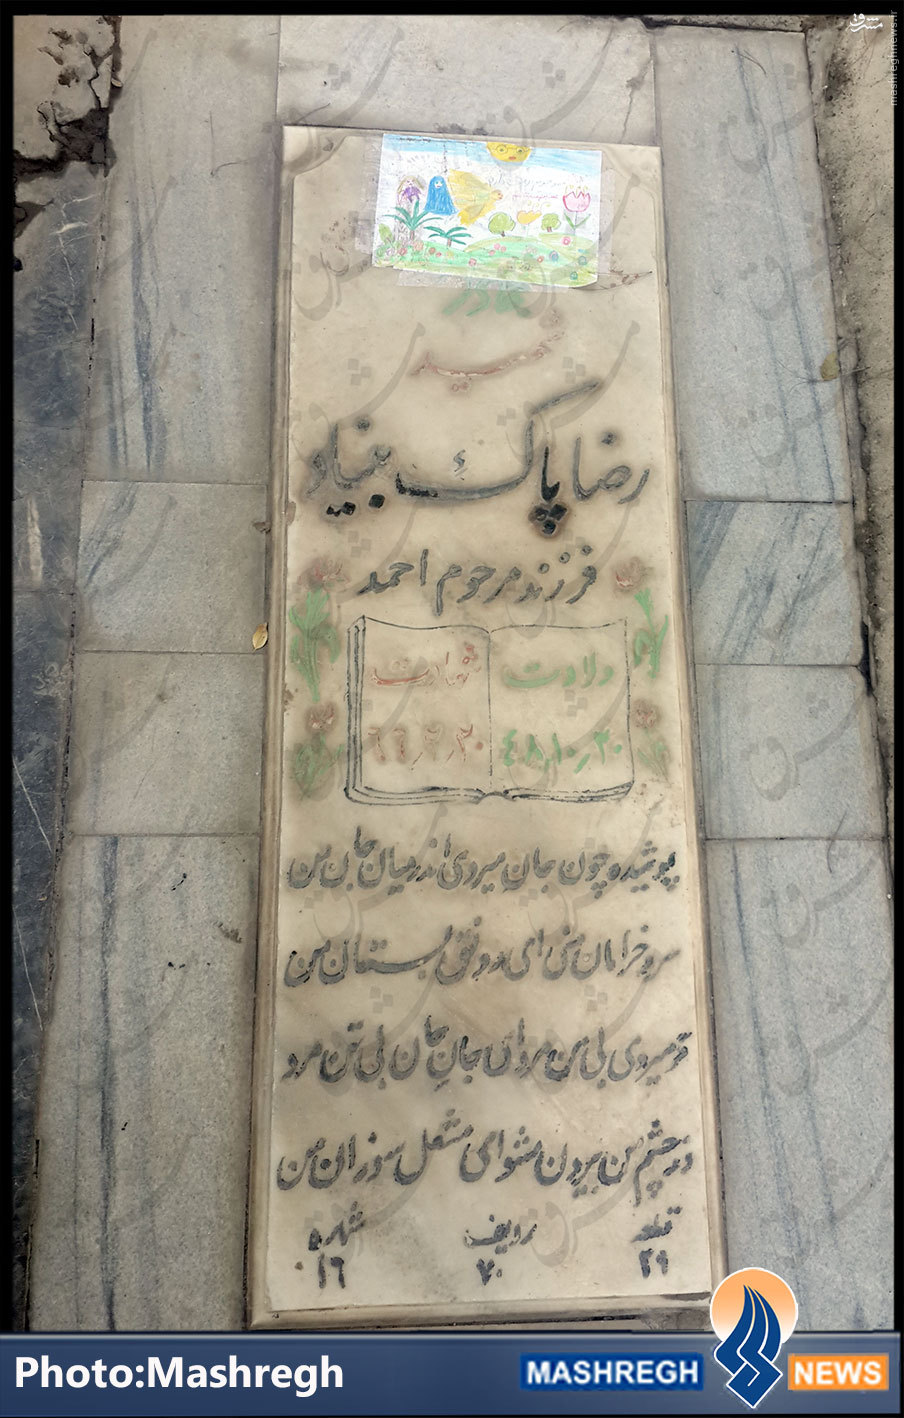 مشرق
mashreghnews.ir
شهید
رضا پاک بنیاد
فرزند مرحوم احمد
ولادت شهادت
۴۸٫۱۰٫۲۰
پوشیده چون جان میروی اندر میان جان من
سرو خرامان منی ای رونق بستان من
تو میروی بی من مرو ای جانِ جان بی تن مرو
در چشم من بیرون مشو ای مشعل سوزان من
قطعه ردیف شماره
۲۹ ۷۰ ۱۶
Photo:Mashregh
MASHREGH NEWS